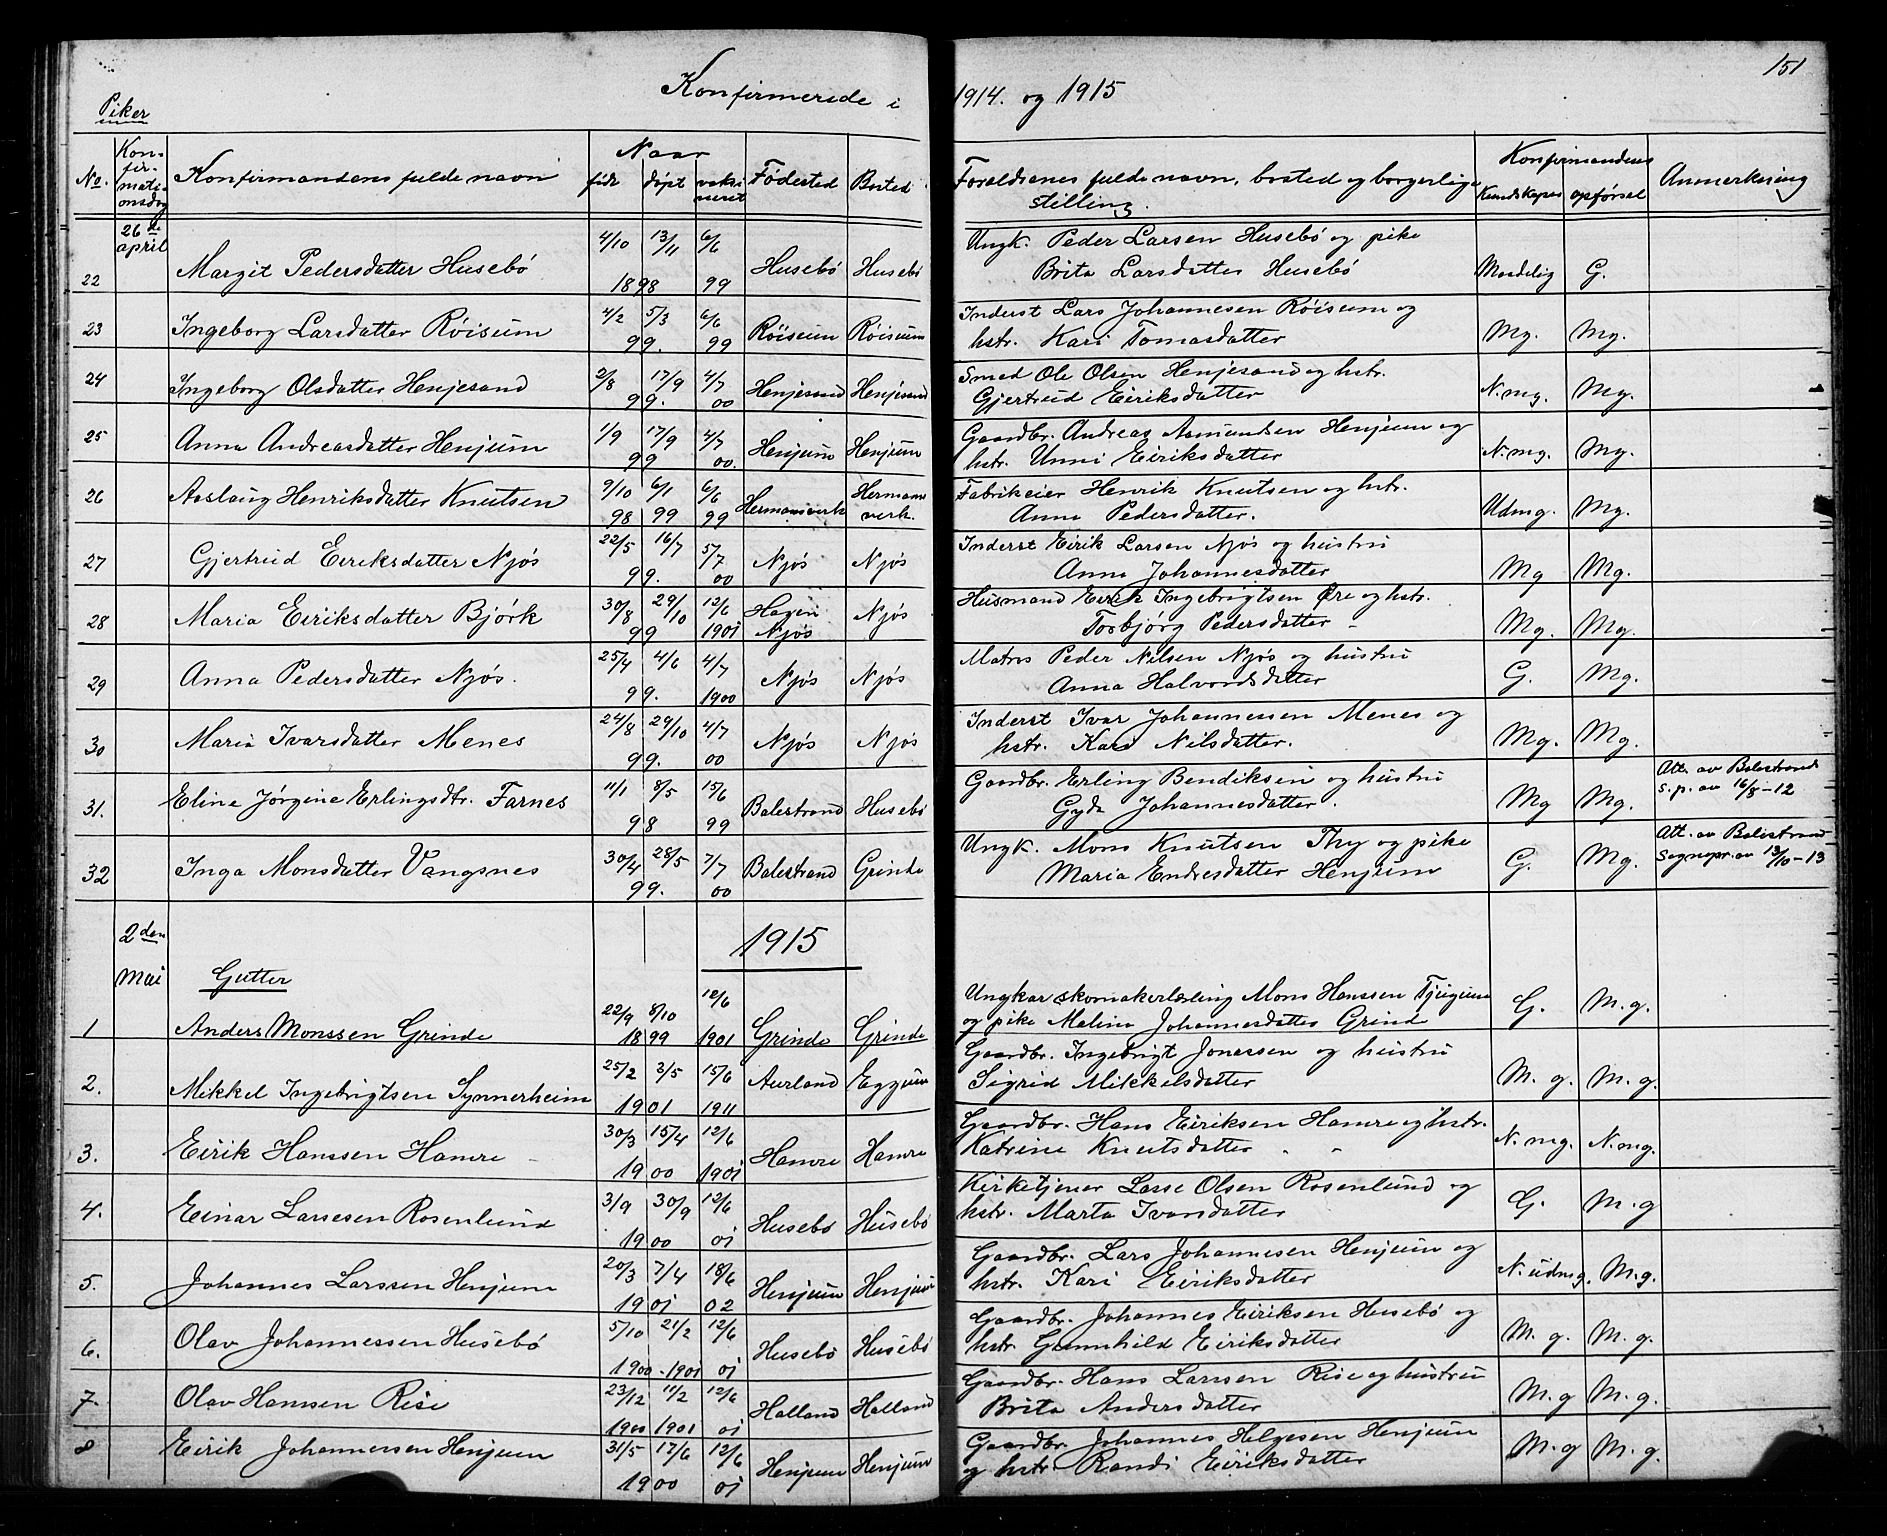 Konfirmerede i 1914. og 1915
151
Piker
No. Konfirmationsdag Konfirmandens fulde navn Naar født døpt vaksineret Fødested Bosted Forældrenes fulde navn, bosted og borgerlige stilling. Konfirmandens Kundskaper opførsel Anmerkning
26de april
22 Margit Pedersdatter Husebö 4/10 13/11 1898 6/6 99 Husebö Husebö Ungk. Peder Larsen Husebö og pike Brita Larsdatter Husebö Maadelig G.
23 Ingeborg Larsdatter Röisum 4/2 5/3 99. 6/6 99 Röisum Röisum Inderst Lars Johannesen Röisum og hstr. Kari Tomasdatter Mg. Mg.
24 Ingeborg Olsdatter Henjesand 2/8 17/9 99. 4/7 00 Henjesand Henjesand Smed Ole Olsen Henjesand og hstr. Gjertrud Eiriksdatter N.mg. Mg.
25 Anna Andreasdatter Henjum 1/9 17/9 99 4/7 00. Henjum Henjum Gaardbr. Andreas Asmundsen Henjum og hstr. Unni Eiriksdatter N.mg. Mg.
26 Aaslaug Henriksdatter Knutsen 9/10 98 6/1 99 6/6 99 Hermansverk Hermansverk. Fabrikeier Henrik Knutsen og hstr. Anna Pedersdatter. Udmg. Mg.
27 Gjertrud Eiriksdatter Njøs 22/5 16/7 99. 5/7 00 Njøs Njøs Inderst Eirik Larsen Njøs og hustru Anna Johannesdatter Mg Mg.
28 Maria Eiriksdatter Bjørk 30/8 29/10 99 12/6 1901 Hagen Njøs Njøs Husmand Eirik Ingebrigtsen Øre og hstr. Torbjørg Pedersdatter Mg. Mg.
29 Anna Pedersdatter Njøs. 25/4 4/6 99. 4/7 1900 Njøs Njøs Matros Peder Nilsen Njøs og hustru Anna Halvordsdatter G. Mg.
30 Maria Ivarsdatter Menes 24/8 29/10 99. 4/7 00 Njøs Njøs Inderst Ivar Johannessen Menes og hstr. Kari Nilsdatter. Mg. Mg.
31. Eline Jørgine Erlingsdtr. Farnes 11/1 8/5 98 15/6 99 Balestrand Husebö Gaardbr. Erling Bendiksen og hustru Gyda Johannesdatter. Mg Mg. Att. av Balestrands s.p. av 16/8-12
32 Inga Monsdatter Vangsnes 30/4 28/5 99. 7/7 00 Balestrand Grinde Ungk. Mons Knutsen Thy og pike Maria Endresdatter Henjum G. Mg. Att. av Balestrand Sognepr. av 13/10-13
2den Mai
1915
Gutter
1 Anders Monssen Grinde 22/9 8/10 1899 12/6 1901 Grinde Grinde Ungkar skomakerlærling Mons Hanssen Tjugum og pike Malina Johannesdatter Grinde G. M.g.
2. Mikkel Ingebrigtsen Synnerheim 25/2 3/5 1901 15/6 1911 Aurland Eggum Gaardbr. Ingebrigt Jonassen og hustru Sigrid Mikkelsdatter M.g. M.g.
3. Eirik Hanssen Hamre 30/3 15/4 1900 12/6 1901 Hamre Hamre Gaardbr. Hans Eiriksen Hamre og hstr. Katrine Knutsdatter N.mg. N.mg.
4. Einar Larssen Rosenlund 3/9 30/9 1900 12/6 01 Husebö Husebö Kirketjener Lasse Olsen Rosenlund og hstr. Marta Ivarsdatter G. M.g
5. Johannes Larssen Henjum 20/3 7/4 1901 18/6 02 Henjum Henjum Gaardbr. Lars Johannesen Henjum og hstr. Kari Eiriksdatter N.udmg. M.g.
6. Olav Johannessen Husebö 5/10 21/2 1900-1901 12/6 01 Husebö Husebö Gaardbr. Johannes Eiriksen Husebö og hstr. Gunnhild Eiriksdatter M.g. M.g.
7. Olav Hanssen Risi 23/12 1900 11/2 1901 12/6 01 Halland Halland Gaardbr. Hans Larssen Rise og hustru Brita Andersdatter M.g M.g.
8 Eirik Johannessen Henjum 31/5 17/6 1900 12/6 01 Henjum Henjum Gaardbr. Johannes Helgesen Henjum og hstr. Randi Eiriksdatter M.g M.g.